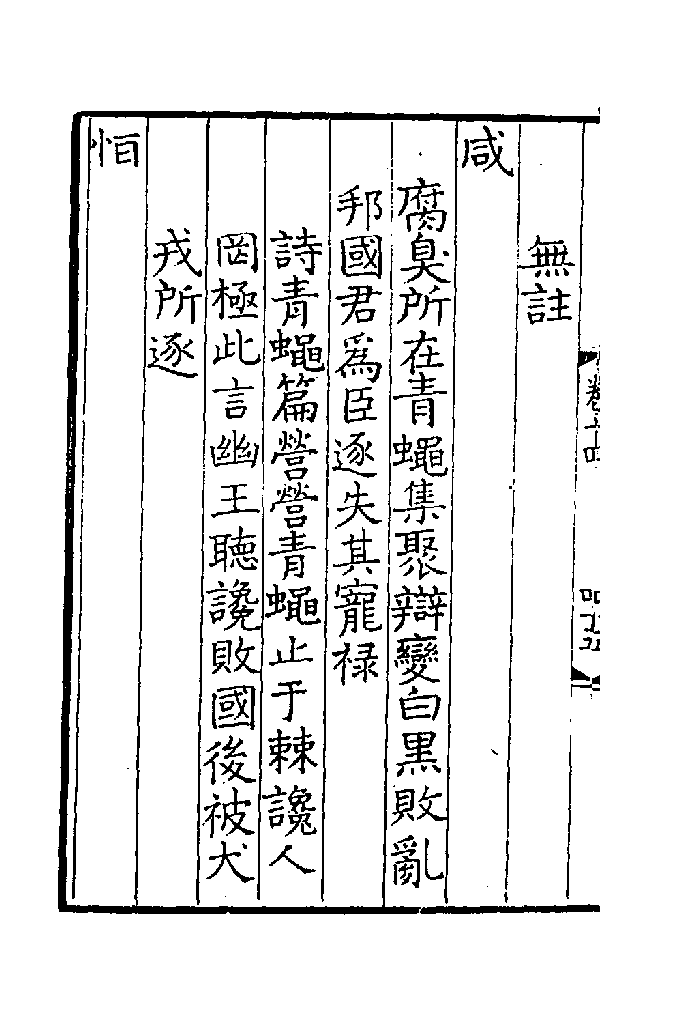 無註
咸
腐臭所在青蠅集聚辯變白黑敗亂
邦國君爲臣逐失其寵祿
詩青蠅篇營營青蠅止于棘讒人
罔極此言幽王聽讒敗國後被犬
戎所逐
恒